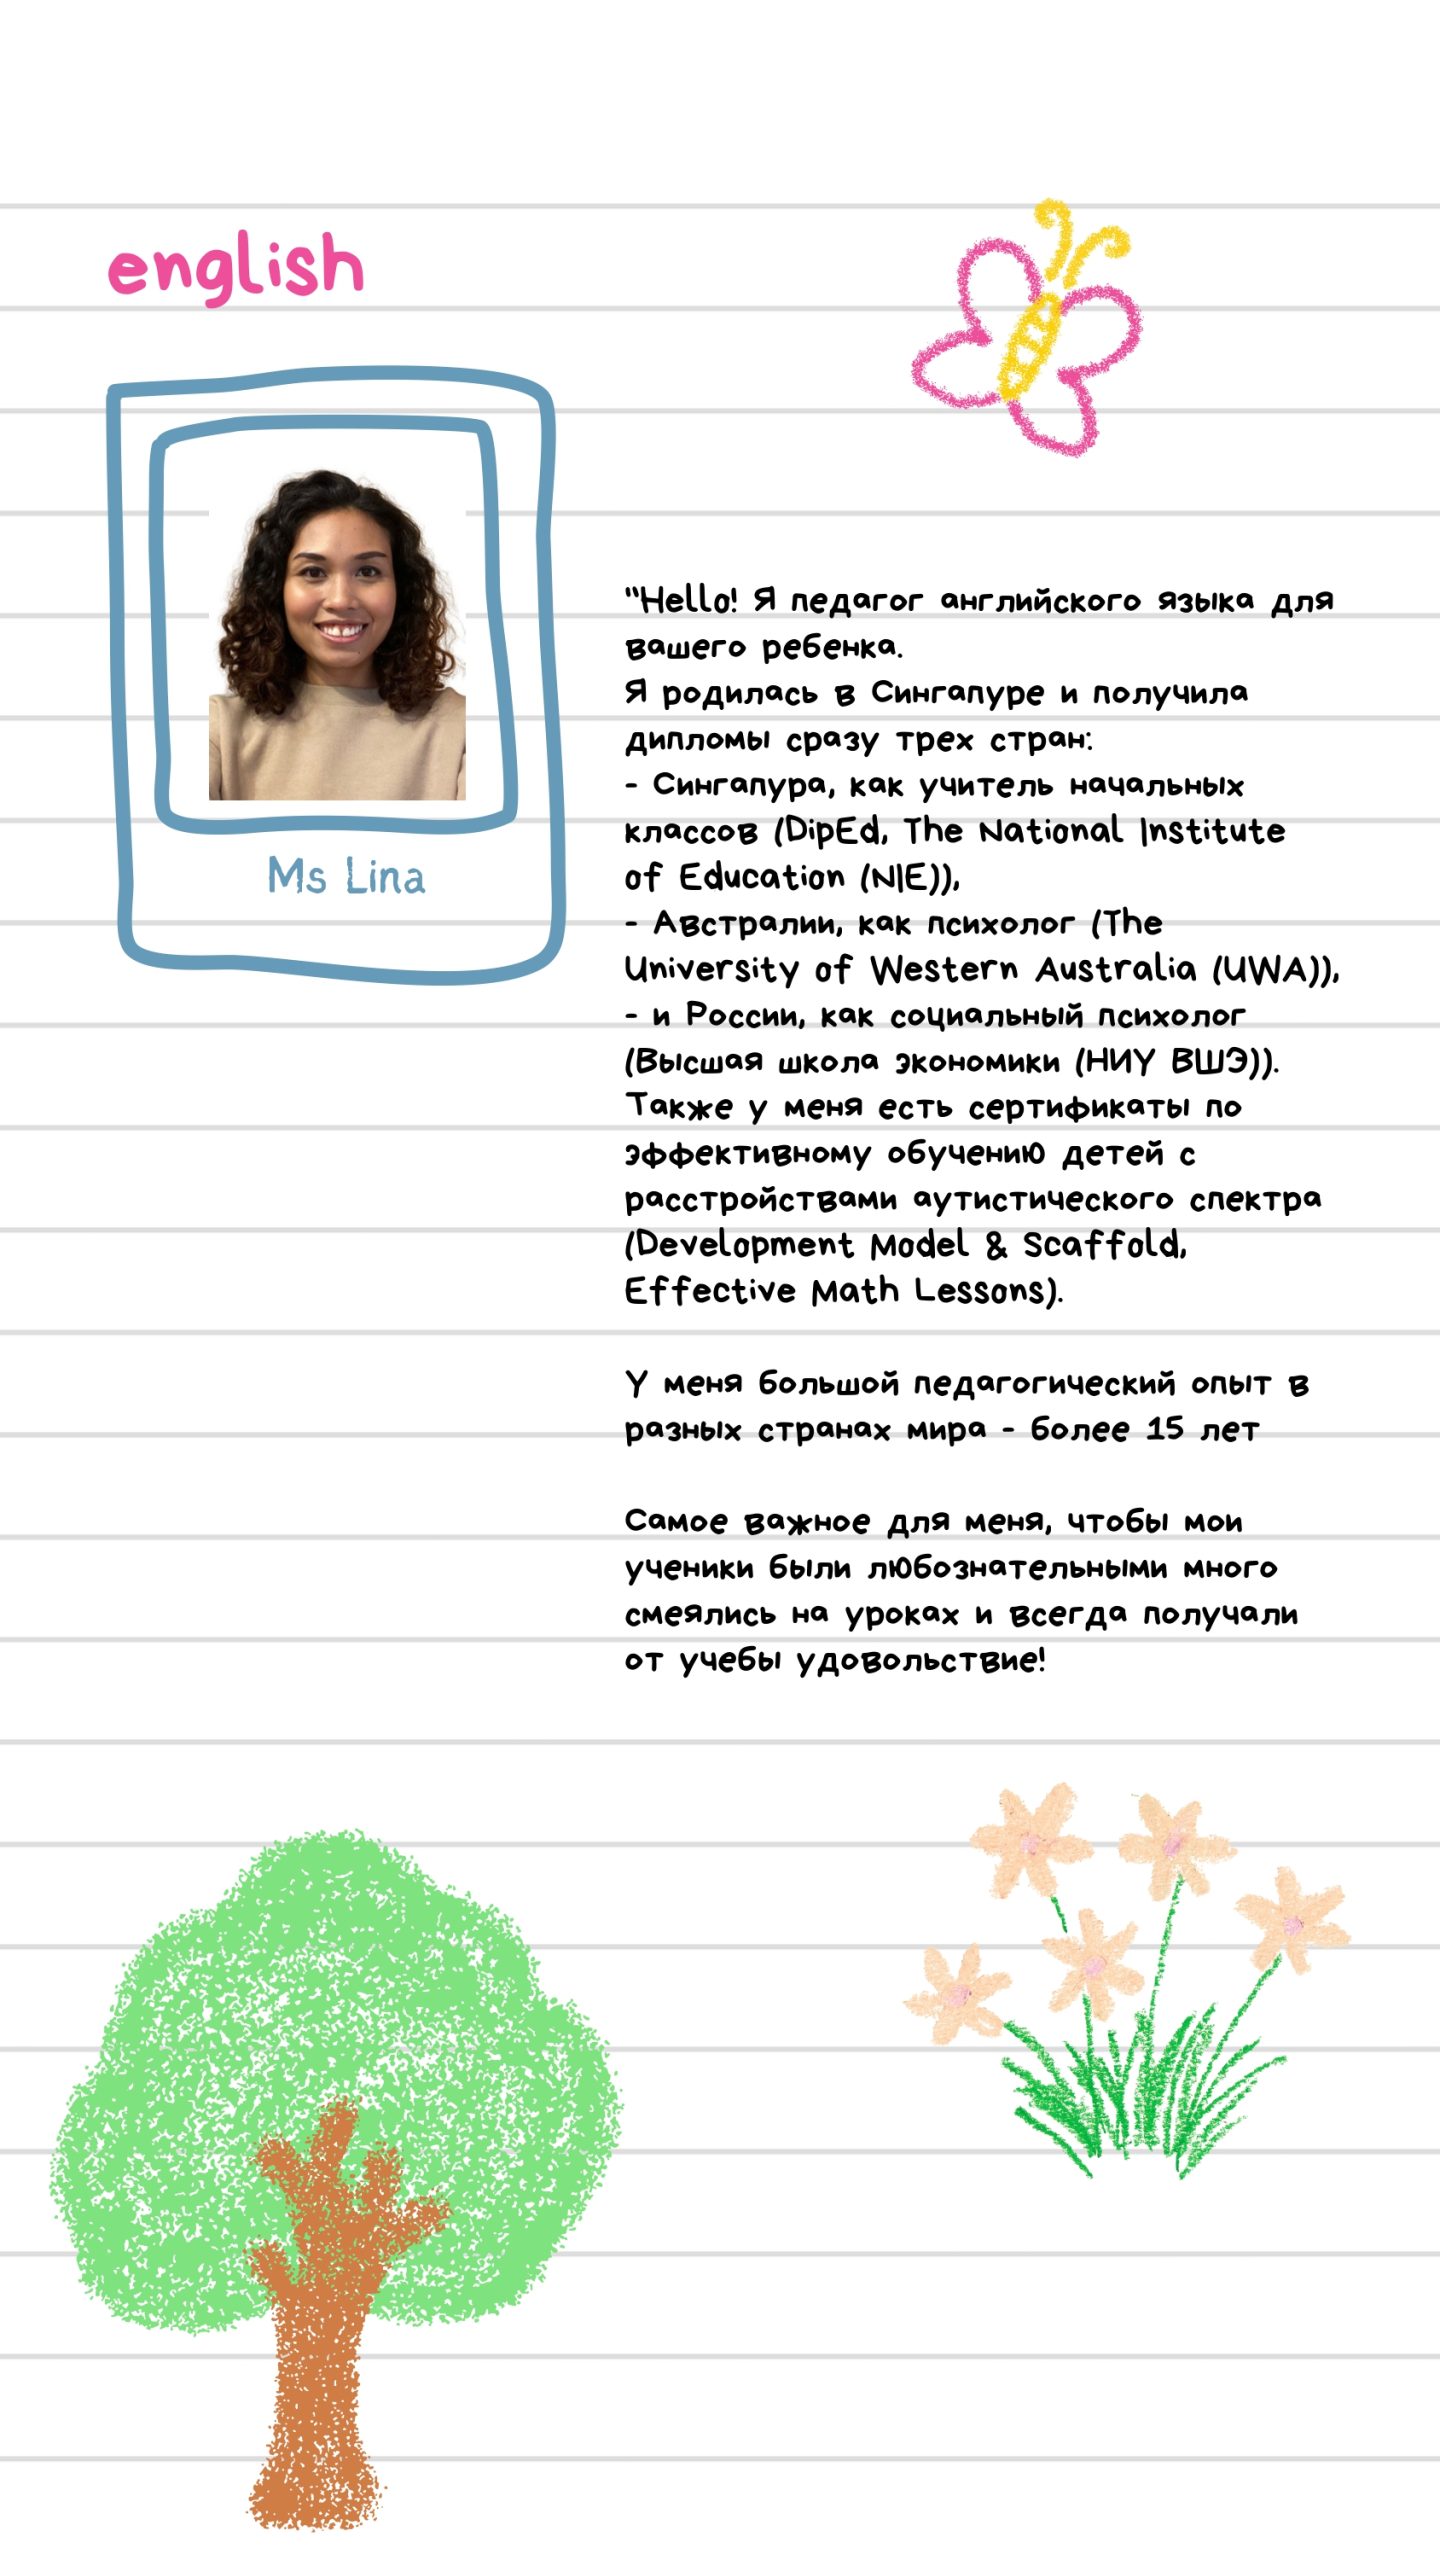 english
Ms Lina
"Hello! Я педагог английского языка для
вашего ребенка.
Я родилась в Сингапуре и получила
дипломы сразу трех стран:
- Сингапура, как учитель начальных
классов (DipEd, The National Institute
of Education (NIE)),
- Австралии, как психолог (The
University of Western Australia (UWA)),
- и России, как социальный психолог
(Высшая школа экономики (НИУ ВШЭ)).
Также у меня есть сертификаты по
эффективному обучению детей с
расстройствами аутистического спектра
(Development Model & Scaffold,
Effective Math Lessons).
У меня большой педагогический опыт в
разных странах мира - более 15 лет
Самое важное для меня, чтобы мои
ученики были любознательными много
смеялись на уроках и всегда получали
от учебы удовольствие!